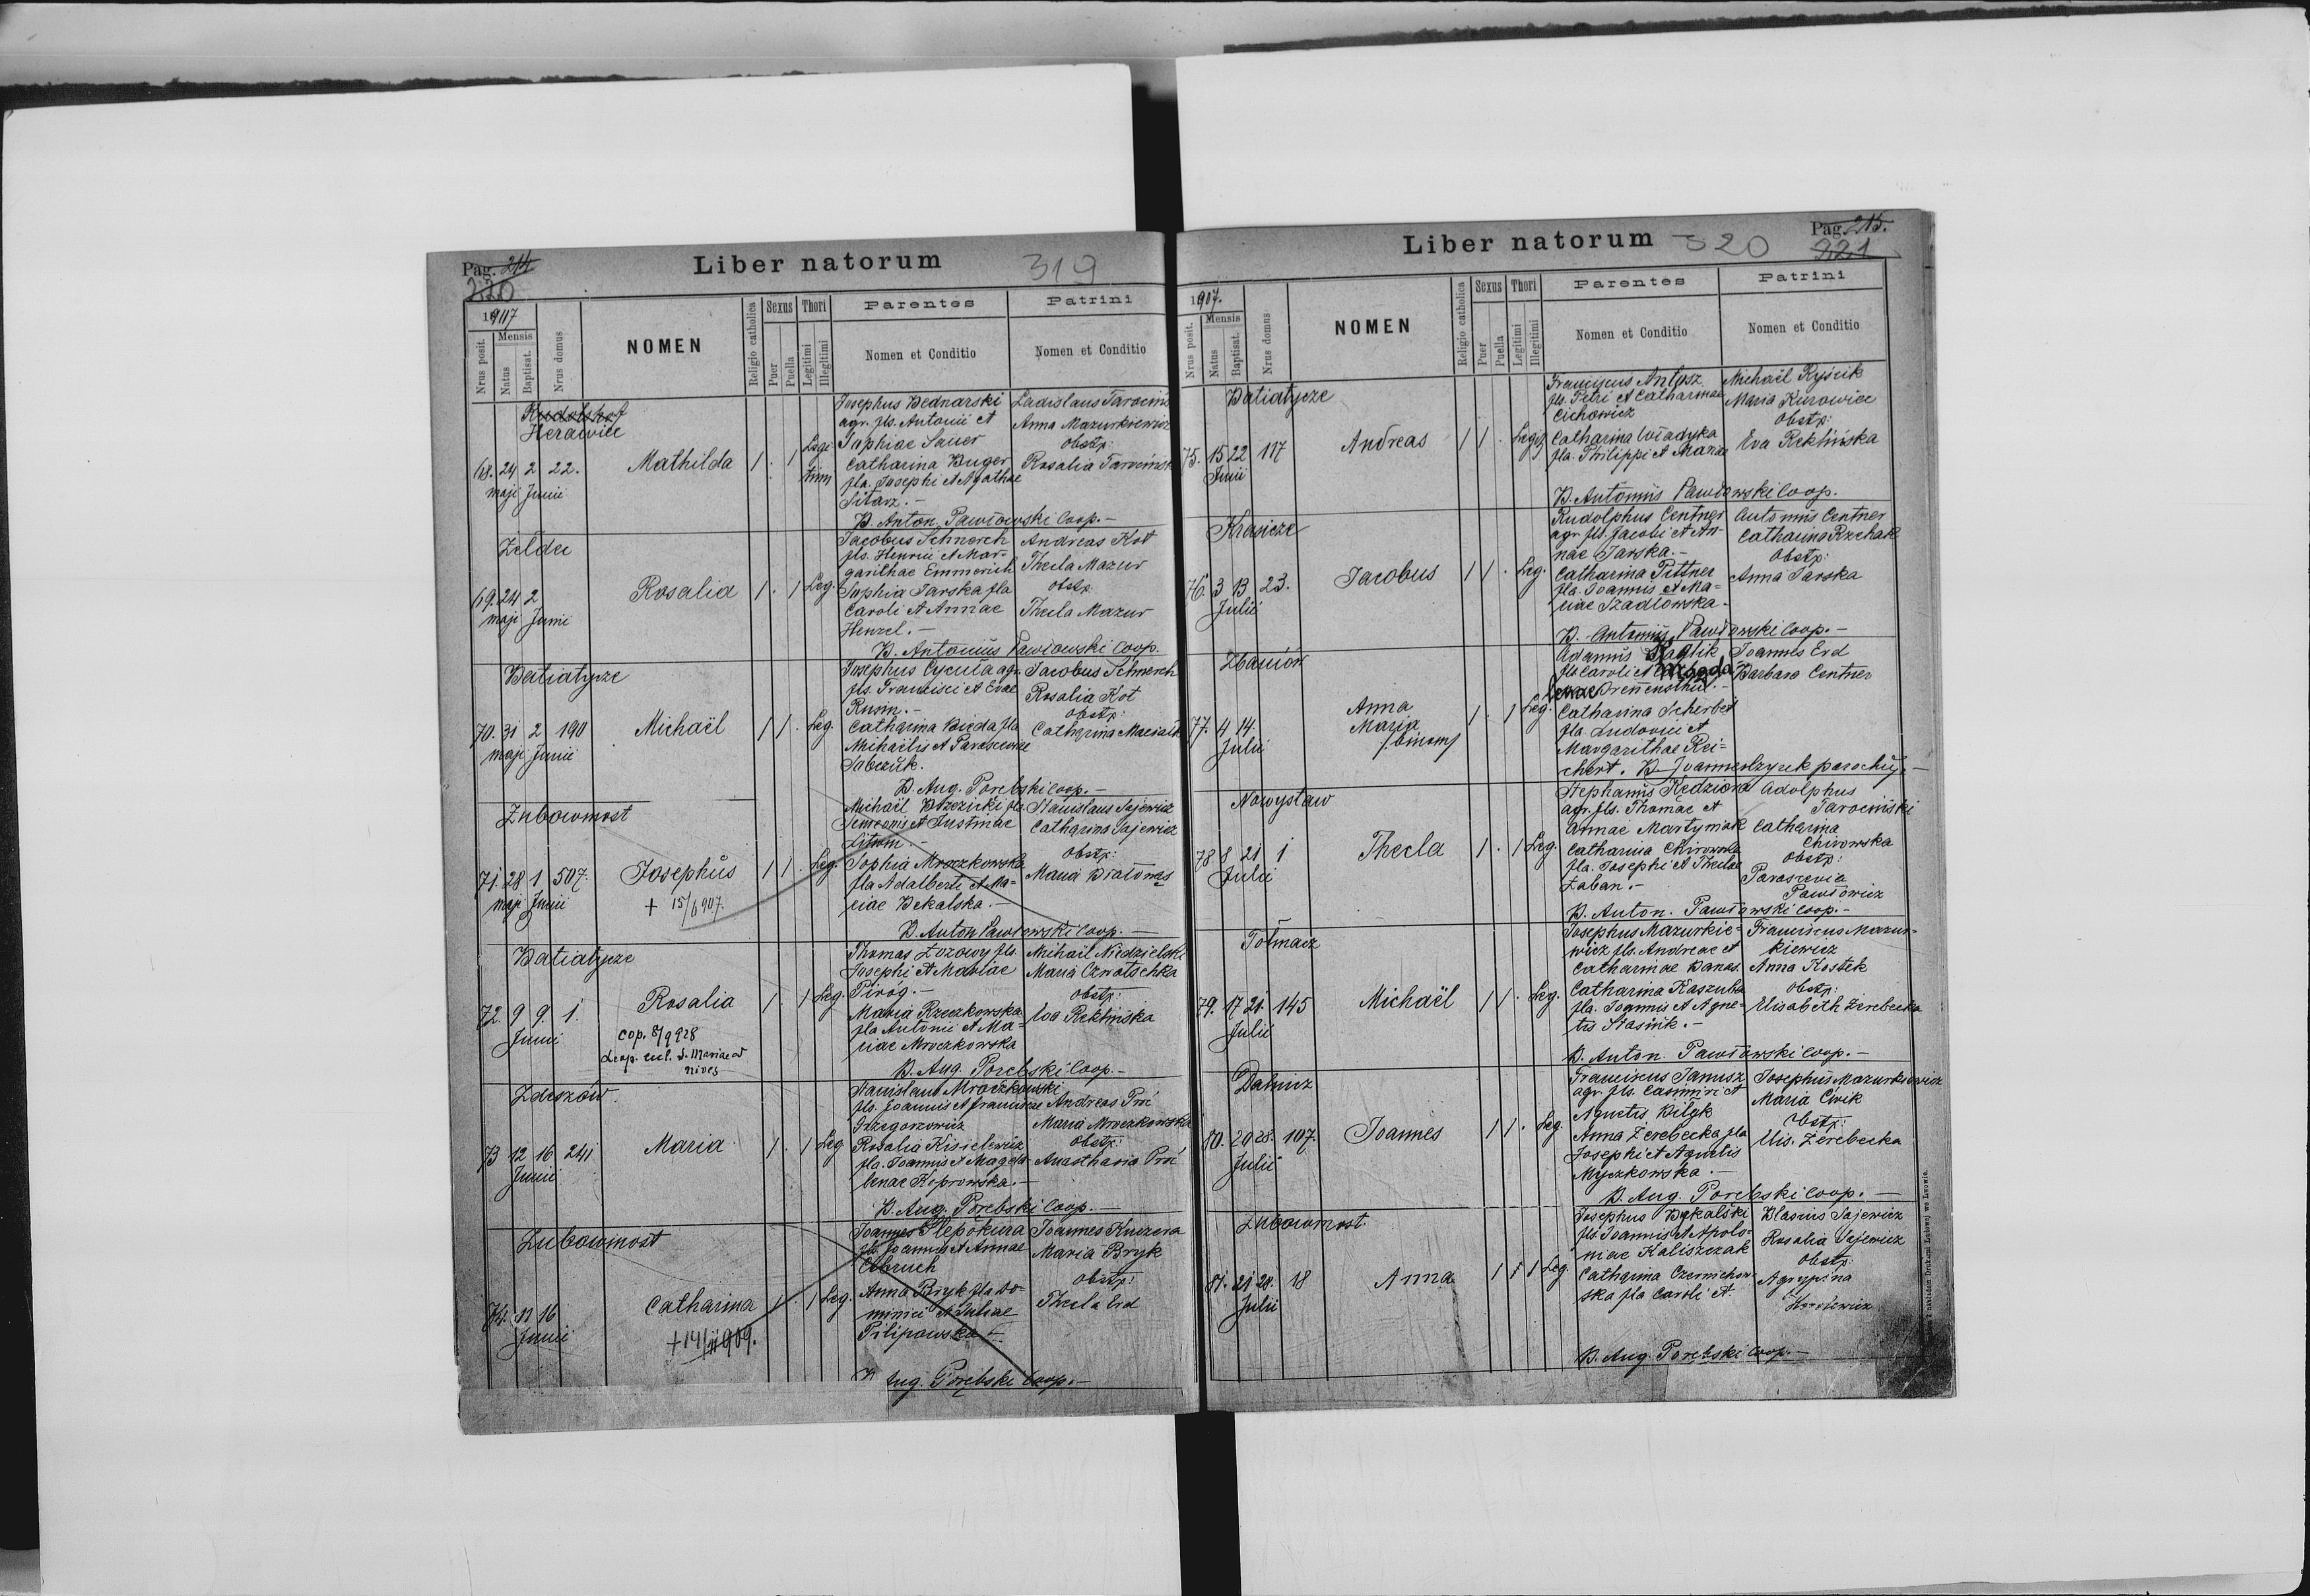 Pag. 214
220
Liber natorum
319
1907
Mensis
Nrus posit.
Natus
Baptisat.
Nrus domus
NOMEN
Religio catholica
Sexus
Puer
Puella
Thori
Legitimi
Illegitimi
Parentes
Nomen et Conditio
Patrini
Nomen et Conditio
Rudolshof
Herawiec
68. 24 2 22.
maji Junii
Mathilda
1 . 1 Legi
tim
Josephus Bednarski
agr. fls. Antonii et
Sophiae Sauer
Catharina Buger
fla. Josephi et Agathae
Sitarz. -
Ladislaus
Anna Mazurkiewicz
Obstp:
Rosalia
B. Anton. Pawłowski Coop. -
Zeldec
69. 24 2
maji Junii
Rosalia
1 . 1 Leg.
Jacobus Schnerch
fls. Henrici et Mar-
garithae Emmerich
Sophia Jarska fla
Caroli et Annae
Henzel. -
Andreas Kot
Thecla Mazur
Obstp:
Thecla Mazur
B. Antonius Pawłowski Coop.
Batiatycze
70. 31 2 190
maji Junii
Michaël
1 1 . Leg.
Josephus Cycuła agr.
fls. Francisci et Evae
Rusin. -
Catharina Bieda fla
Michaëlis et Parasceviae
Sobczuk.
Jacobus Schnerch
Rosalia Kot
Obstp:
Catharina
B. Aug. Porębski Coop. -
Żubowmost
71. 28 1 507.
maji Junii
Josephus
+ 15/6 907.
1 1 . Leg.
Michaël Brzezicki fls.
Simeonis et Justinae
Sophia Mroczkowska
fla Adalberti et Ma-
riae Bekalska. -
Stanislaus Sajewicz
Catharina Sajewicz
Obstp:
Maria
B. Anton Pawłowski Coop. -
Batiatycze
72. 9 9 1.
Junii
Rosalia
cop. 8/9 928
Leop. eccl. S. Mariae ad
nives
1 . 1 Leg.
Thomas Łozowy fls.
Josephi et Mariae
Piróg. -
Maria Rzeczkowska
fla Antonii et Ma-
riae Mroczkowska
Michaël Niedzielski
Maria
Obstp:
Eva Reklińska
B. Aug. Porębski Coop. -
Zdeszów
73 12 16 241
Junii
Maria
1 . 1 Leg
Stanislaus Mroczkowski
fls. Joannis et Franciscae
Grzegorzewicz
Rosalia Kisielewicz
fla. Joannis et Magda-
lenae Koprowska. -
Andreas Proć
Maria Mroczkowska
Obstp:
Anasthasia Proć
B. Aug. Porębski Coop. -
Żubowmost
74. 11 16
Junii
Catharina
+ 14/11 909.
1 . 1 Leg.
Joannes Slepokura
fls. Joannis et Annae
Anna Bryk fla Do-
minici et Juliae
Pilipowska -
Joannes Kuczera
Maria Bryk
Obstp:
Thecla Erd
Aug. Porębski Coop. -
Pag. 215.
221
Liber natorum
320
1907.
Mensis
Nrus posit.
Natus
Baptisat.
Nrus domus
NOMEN
Religio catholica
Sexus
Puer
Puella
Thori
Legitimi
Illegitimi
Parentes
Nomen et Conditio
Patrini
Nomen et Conditio
Batiatycze
75. 15 22 117
Junii
Andreas
1 1 . Legi
Franciscus Antosz
fls. Petri et Catharinae
Cichowicz
Catharina Władyka
fla. Philippi et Mariae
Michaël Ryścik
Maria Kurowiec
Obstp:
Eva Reklińska
B. Antonius Pawłowski Coop.
76. 3 13 23.
Julii
Jacobus
1 1 . Leg.
Rudolphus Centner
agr. fls. Jacobi et An-
nae Jarska. -
Catharina Pittner
fla. Joannis et Ma-
riae Szadlowska. -
Antonius Centner
Catharina Rzehak
Obstp:
Anna Jarska
B. Antonius Pawłowski Coop. -
Zbaniów
77. 4 14.
Julii
Anna
Maria
/binom/
1 . 1 Leg.
fls Caroli et Magda
lenae
Catharina Scherbet
fla. Ludovici et
Margarithae Rei-
chert.
Joannes Erd
Barbara Centner
Nowystaw
78 8 21 1
Julii
Thecla
1 . 1 Leg.
Stephanus Kędziora
agr. fls. Thomae et
Annae Martyniak
Catharina Chirowska
fla. Josephi et Theclae
Łaban. -
Adolphus
Tarociński
Catharina
Chirowska
Obstp:
Parascevia
Pawłowicz
B. Anton. Pawłowski Coop. -
Tołmacz
79. 17 21. 145
Julii
Michaël
1 1 . Leg.
Josephus Mazurkie-
wicz fls. Andreae et
Catharinae Banas.
Catharina Kaszuba
fla. Joannis et Agne-
tis Stasink. -
Franciscus Mazur-
kiewicz
Anna Kostek
Obstp:
Elisabeth Żerebecka
B. Anton. Pawłowski Coop. -
Dalnicz
80. 20 28. 107.
Julii
Joannes
1 1 . Leg.
Franciscus Janusz
agr. fls. Casimiri et
Agnetis Bilyk
Anna Żerebecka fla
Josephi et Agnetis
Myczkowska. -
Josephus Mazurkiewicz
Maria Ćwik
Obstp:
Elis. Żerebecka
B. Aug. Porębski Coop. -
Żubowmost.
81. 21 28. 18
Julii
Anna
1 1 1 Leg.
Josephus Bekalski
fls Joannis et Apolo-
niae Kaliszczak
Catharina Czernichow-
ska fla Caroli et
Blasius Sajewicz
Rosalia Sajewicz
Obstp:
Agrypina
B. Aug. Porębski Coop. -
nakładem Drukarni Ludowej we Lwowie.